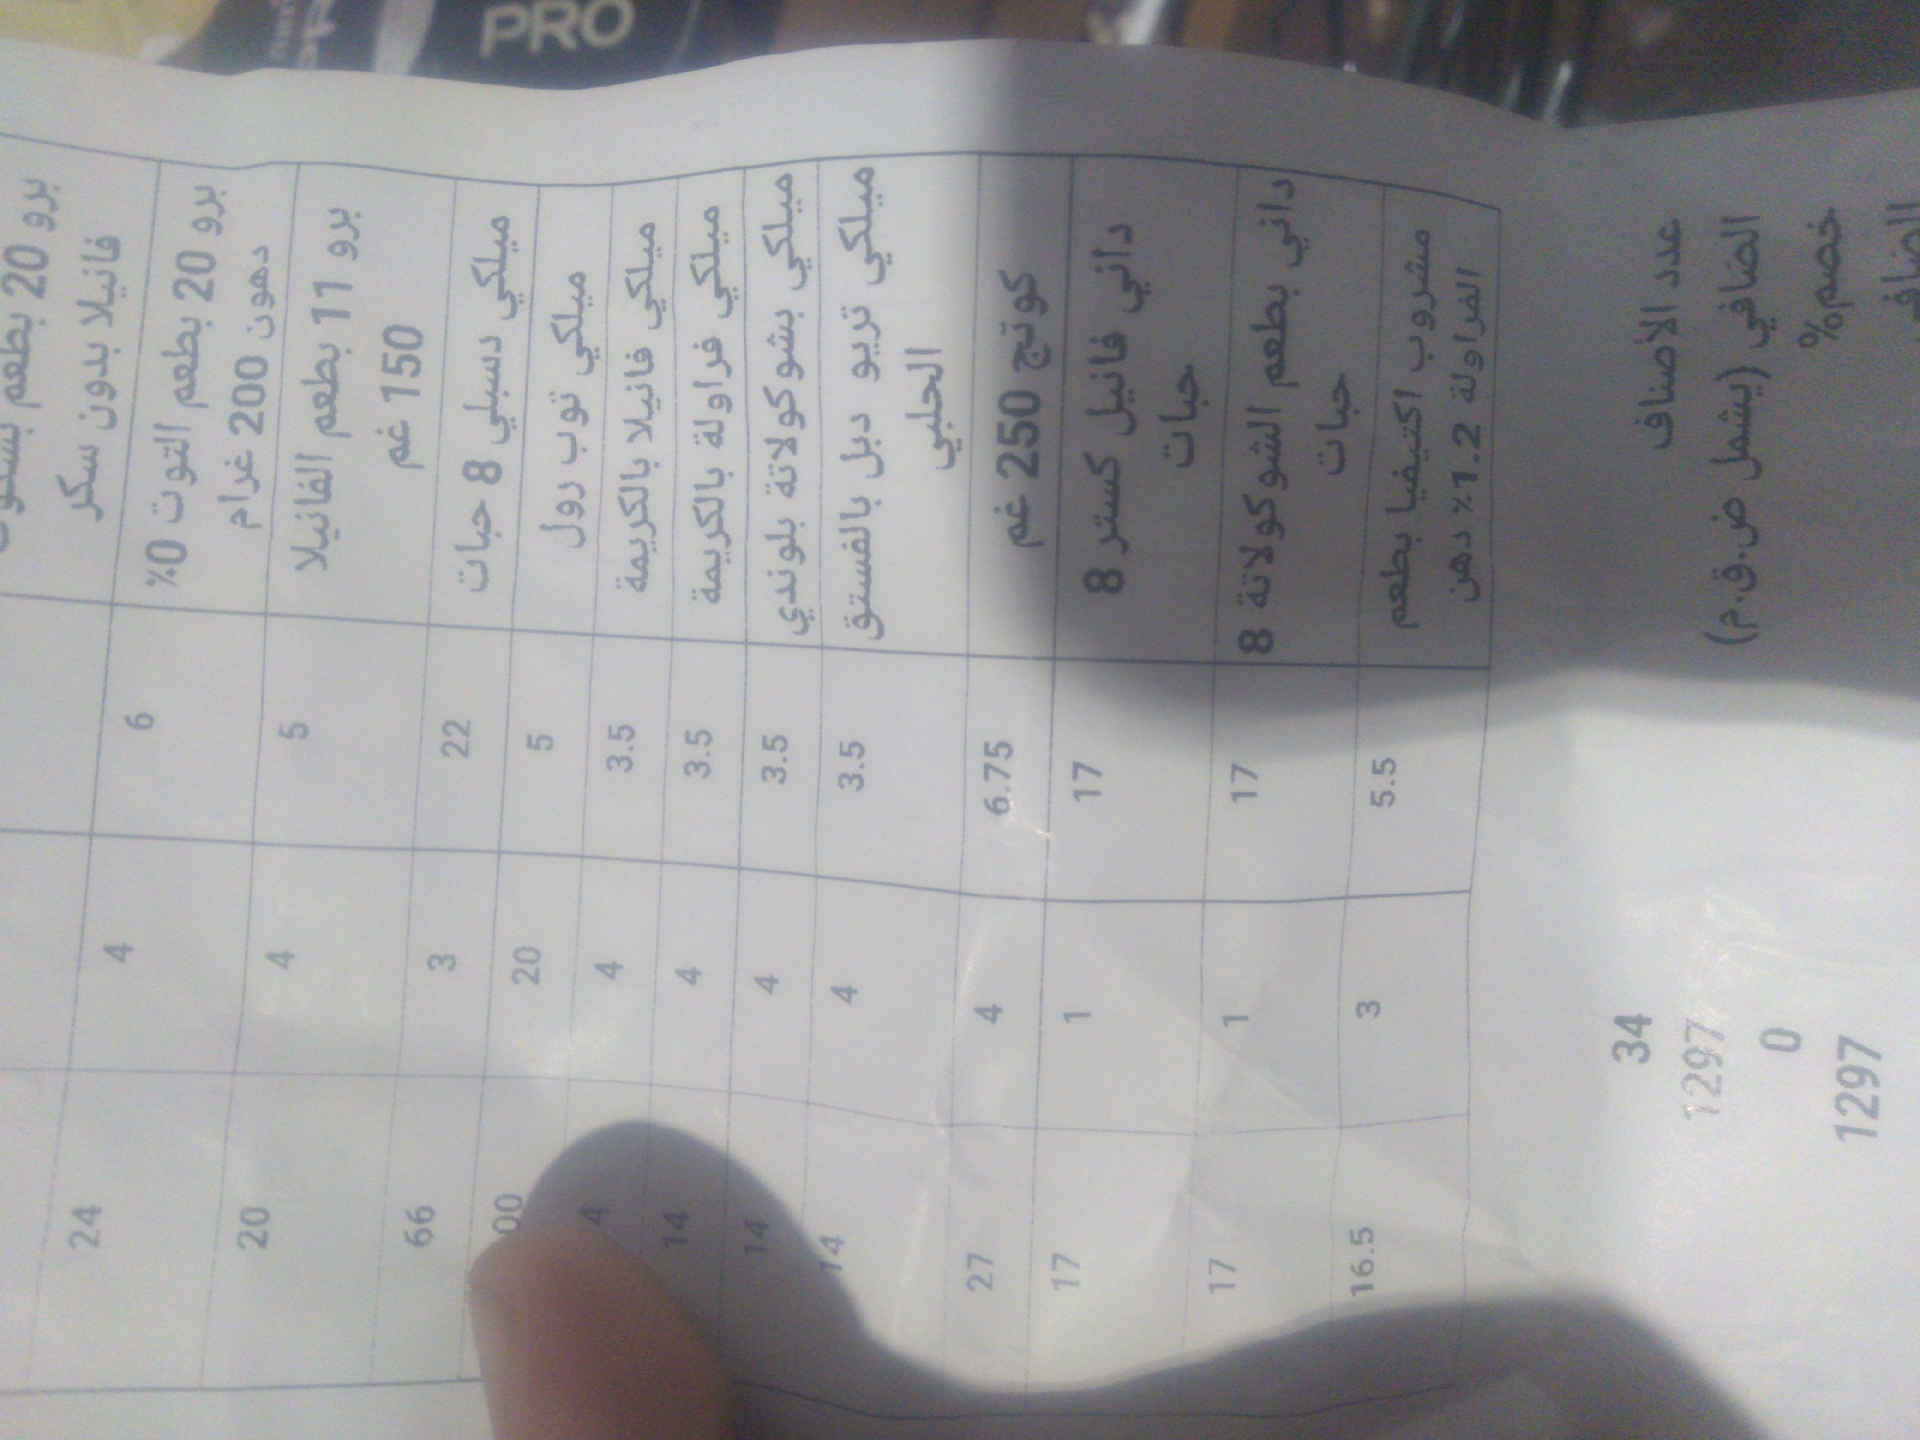 PRO
برو 20 بطعم
فانيلا بدون سكر
برو 20 بطعم التوت 0% 6 4 24
دهون 200 غرام
برو 11 بطعم الفانيلا 5 4 20
150 غم
ميلكي دسبلي 8 حبات 22 3 66
ميلكي توب رول 5 20 00
ميلكي فانيلا بالكريمة 3.5 4 4
ميلكي فراولة بالكريمة 3.5 4 14
ميلكي بشوكولاتة بلوندي 3.5 4 14
ميلكي تريو دبل بالفستق 3.5 4 14
الحلبي
كوتج 250 غم 6.75 4 27
داني فانيل كستر 8 17 1 17
حبات
داني بطعم الشوكولاتة 8 17 1 17
حبات
مشروب اكتيفيا بطعم 5.5 3 16.5
الفراولة 1.2% دهن
عدد الأصناف 34
الصافي (يشمل ض.ق.م) 1297
خصم% 0
الصافي 1297